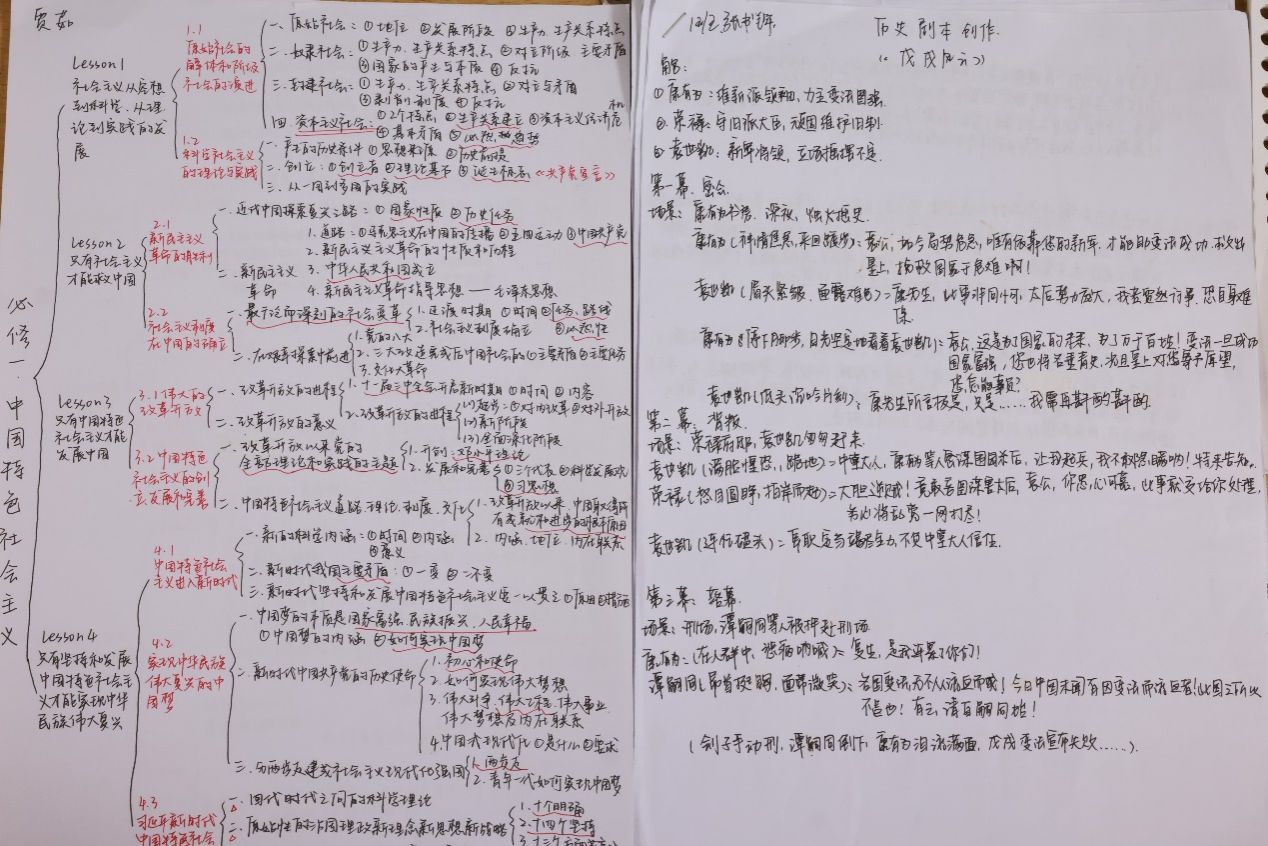 贾茹
必修一·中国特色社会主义
Lesson 1
社会主义从空想
到科学、从理
论到实践的发
展
1.1
原始社会的
解体和阶级
社会的演进
一、原始社会:①地位 ②发展阶段 ③生产力、生产关系特点
二、奴隶社会:①生产力、生产关系特点 ②对立阶级 主要矛盾
③国家的产生与本质 ④反抗
三、封建社会:①生产力、生产关系特点 ②对立与矛盾
③剥削制度 ④反抗
四、资本主义社会:①2个特点 ②生产关系建立 ③资本主义经济危机
④基本矛盾 ⑤必然趋势
1.2
科学社会主义
的理论与实践
一、产生的历史条件 ①思想来源 ②历史前提
二、创立:①创立者 ②理论基石 ③诞生标志《共产党宣言》
三、从一国到多国的实践
Lesson 2
只有社会主义
才能救中国
2.1
新民主主义
革命的胜利
一、近代中国探索复兴之路:①国家性质 ②历史任务
二、新民主主义
革命
1.道路:①马克思主义在中国的传播 ②五四运动 ③中国共产党
2.新民主主义革命的性质和历程
3.中华人民共和国成立
4.新民主主义革命指导思想——毛泽东思想
2.2
社会主义制度
在中国的确立
一、最广泛而深刻的社会变革
1.过渡时期 ①时间 ②任务、路线
2.社会主义制度确立 ①必然性
二、在艰辛探索中前进
1.党的八大
2.三大改造完成后中国社会的①主要矛盾②主要任务
3.文化大革命
Lesson 3
只有中国特色
社会主义才能
发展中国
3.1 伟大的
改革开放
一、改革开放的进程
1.十一届三中全会开启新时期 ①时间 ②内容
2.改革开放的进程
(1)起步:①对内改革②对外开放
(2)新阶段
(3)全面深化阶段
二、改革开放的意义
3.2 中国特色
社会主义的创
立、发展和完善
一、改革开放以来党的
全部理论和实践的主题
1.开创:邓小平理论
2.发展和完善 ①三个代表 ②科学发展观
③习思想
二、中国特色社会主义道路、理论、制度、文化
1.改革开放以来,中国取得所
有成就和进步的根本原因
2.内涵、地位、内在联系
Lesson 4
只有坚持和发展
中国特色社会主
义才能实现中华
民族伟大复兴
4.1
中国特色社会
主义进入新时代
一、新的科学内涵:①时间 ②内涵
③意义
二、新时代我国主要矛盾:①一变 ②二不变
三、新时代坚持和发展中国特色社会主义要一以贯之
4.2
实现中华民族
伟大复兴的中
国梦
一、中国梦的本质是国家富强、民族振兴、人民幸福
①中国梦的内涵 ②如何实现中国梦
二、新时代中国共产党的历史使命
1.初心和使命
2.如何实现伟大梦想
3.伟大斗争、伟大工程、伟大事业、
伟大梦想及内在联系
4.中国式现代化 ①是什么 ②要求
三、分两步走建成社会主义现代化强国
1.两步走
2.青年一代如何实现中国梦
4.3
习近平新时代
中国特色社会
一、回代时代之问的科学理论
二、原始性的治国理政新理念新思想新战略
1.十个明确
2.十四个坚持
3.十三个方面
12班 张书
历史剧本创作
《戊戌风云》
角色:
①康有为:维新派领袖,力主变法图强。
②荣禄:守旧派大臣,顽固维护旧制。
③袁世凯:新军将领,立场摇摆不定。
第一幕:密会
场景:康有为书房,深夜,烛火摇曳。
康有为(神情焦急,来回踱步):袁公,如今局势危急,唯有依靠您的新军,才能助变法成功,救出
皇上,挽救国家于危难啊!
袁世凯(眉头紧锁,面露难色):康先生,此事非同小可,太后势力庞大,我若贸然行事,恐自身难
保。
康有为(停下脚步,目光坚定地看着袁世凯):袁公,这是为了国家的未来,为了万千百姓!变法一旦成功
国家富强,您也将名垂青史,光且皇上对您寄予厚望,
您忍能辜负?
袁世凯(低头沉吟片刻):康先生所言极是,只是……我需再斟酌斟酌。
第二幕:背叛
场景:荣禄府邸,袁世凯匆匆赶来。
袁世凯(满脸惶恐,跪地):中堂大人,康有为等人密谋围园杀后,让我起兵,我不敢隐瞒呐!特来告知。
荣禄(怒目圆睁,拍案而起):大胆逆贼!竟敢妄图谋害太后,袁公,你忠心可嘉,此事就交给你处理,
务必将乱党一网打尽!
袁世凯(连忙磕头):卑职定当竭尽全力,不负中堂大人信任。
第三幕:落幕
场景:刑场,谭嗣同等人被押赴刑场
康有为:(在人群中,悲痛呐喊):复生,是我连累了你们!
谭嗣同(昂首挺胸,面带微笑):各国变法,无不从流血而成!今日中国未闻有因变法而流血者,此国之所以
不昌也!有之,请自嗣同始!
(刽子手动刑,谭嗣同倒下,康有为泪流满面,戊戌变法宣布失败……)。